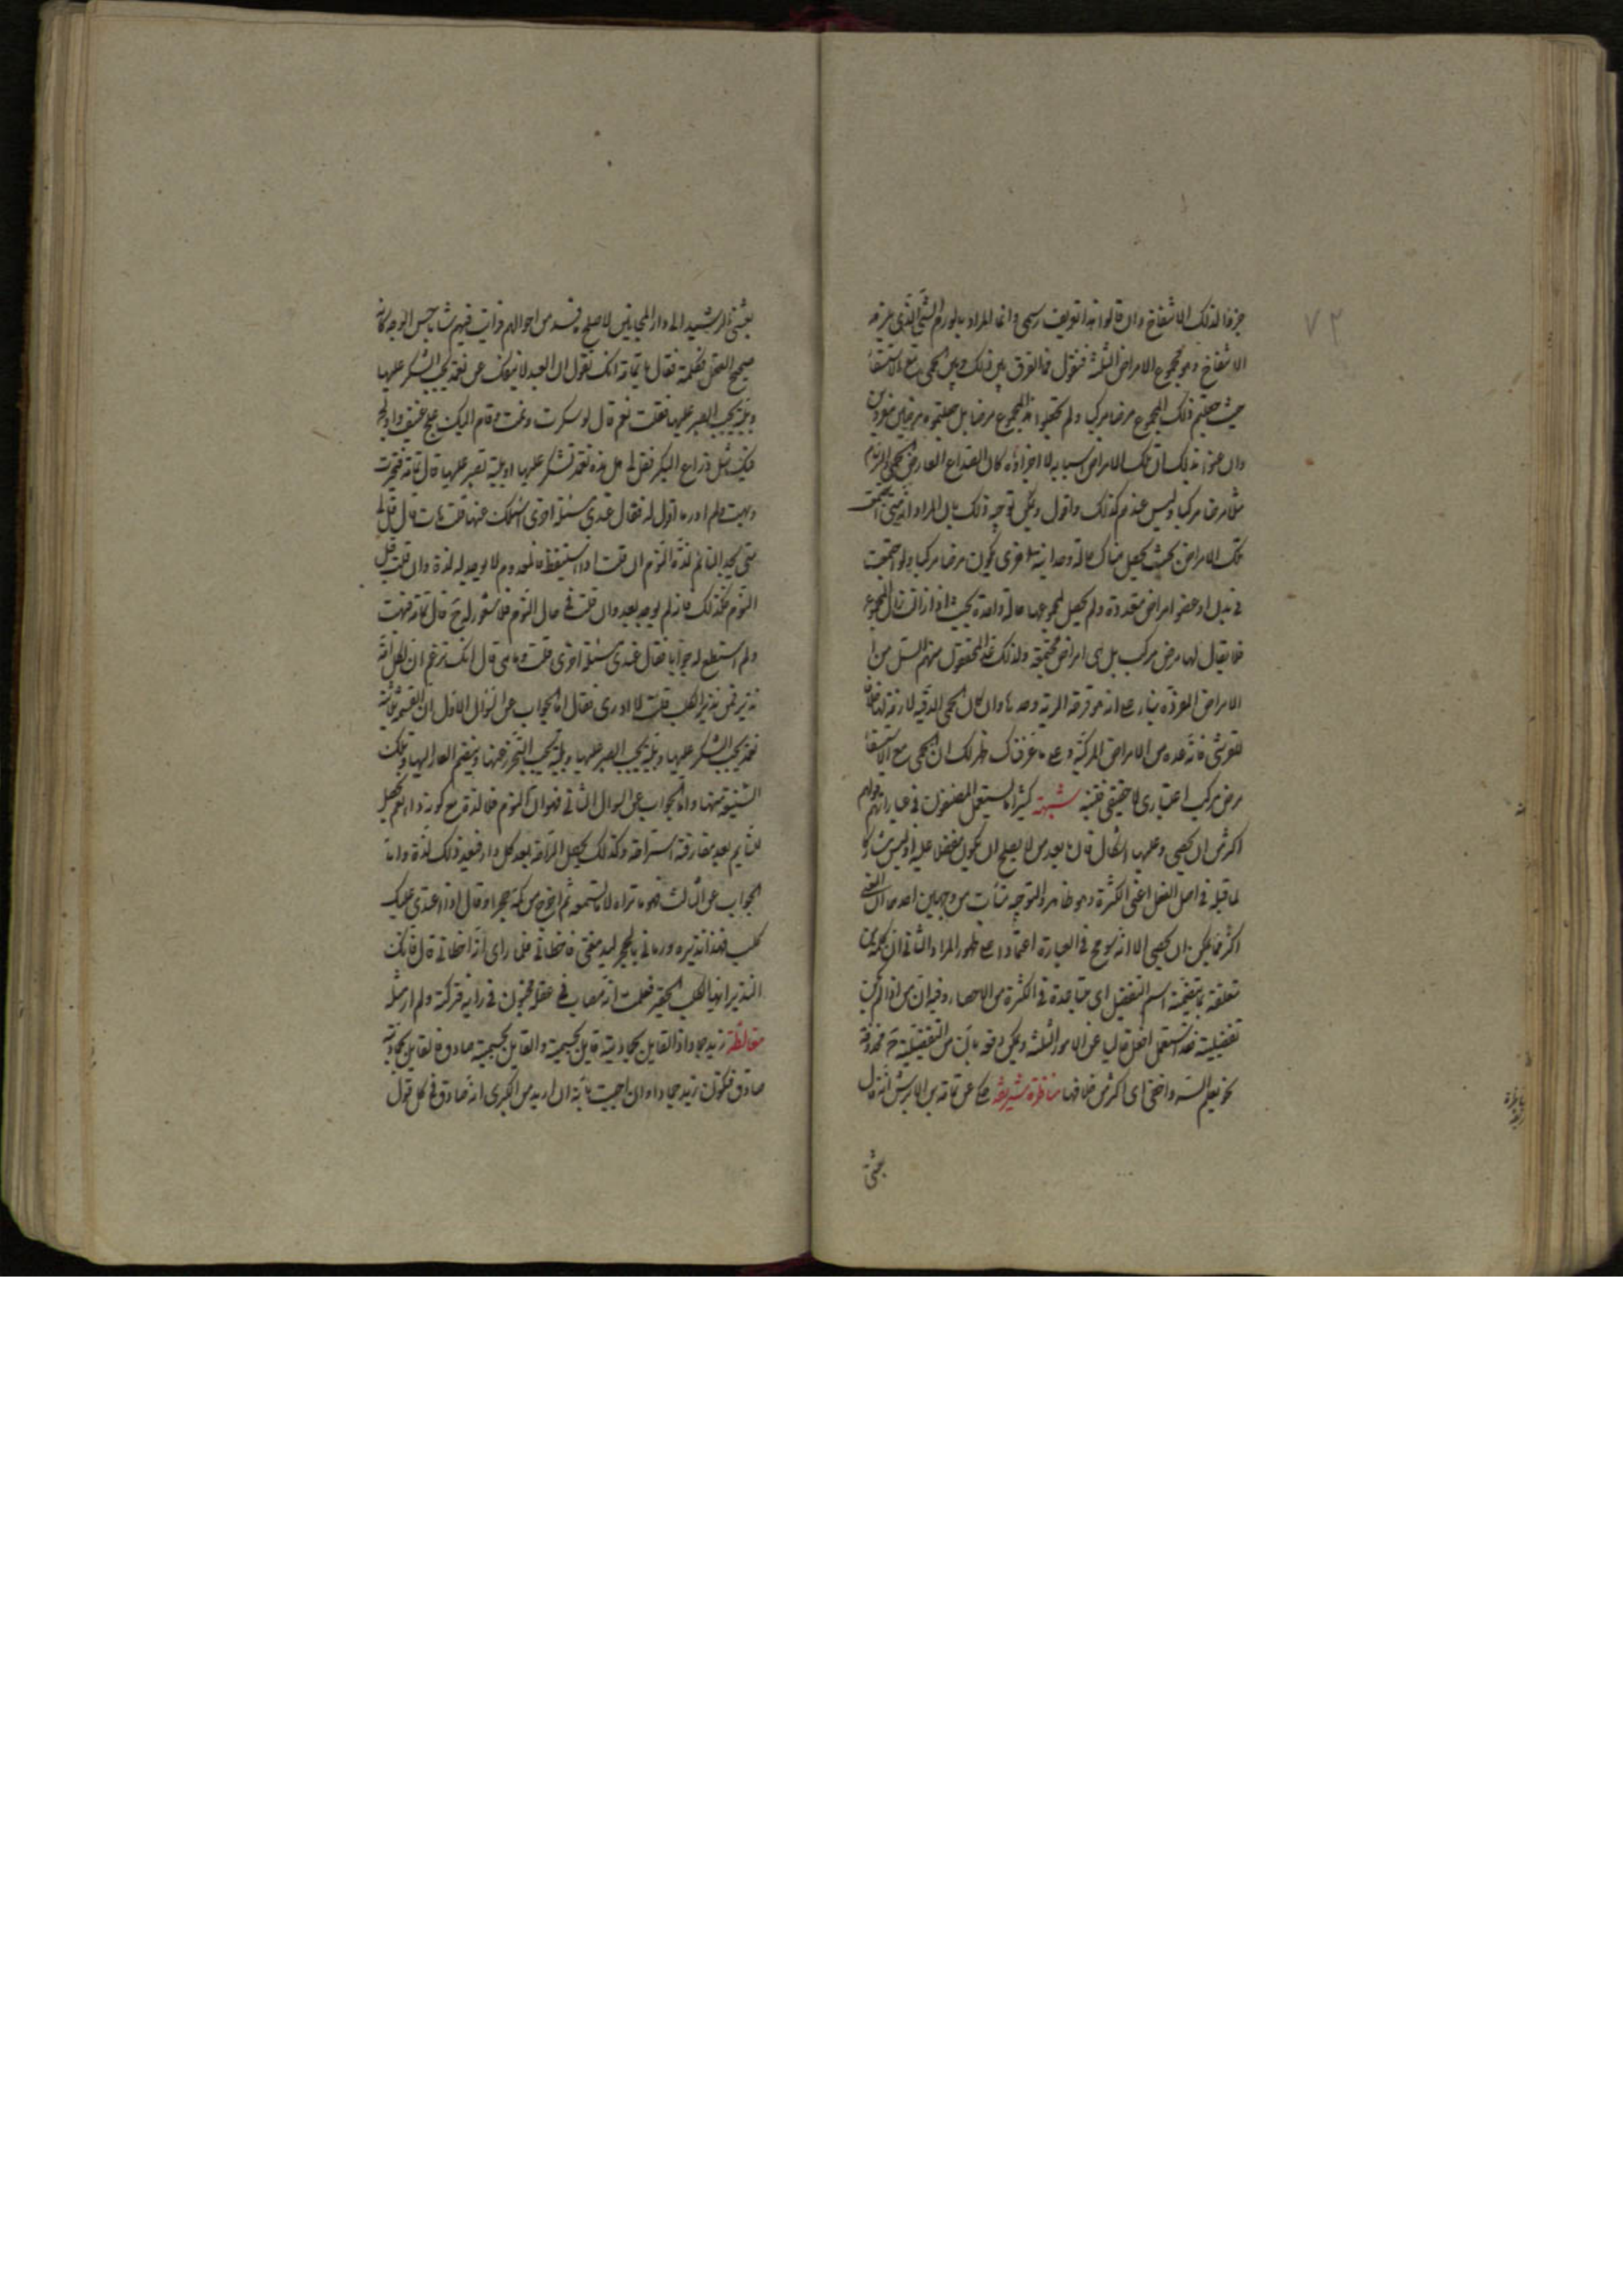 ٧٣
جزءا لذلك الانتفاخ وان قالوا هذا تعريف رسمي وانما المراد بالورم الشئ الذي يلزمه
الانتفاخ وهو مجموع الامراض الثلثة فنقول فما الفرق بين ذلك وبين الحمى مع الاستسقاء
حيث جعلتم ذلك المجموع مرضا مركبا ولم تجعلوا هذا المجموع مرضا بل جعلتموه مرضين مفردين
وان عنوا بذلك ان تلك الامراض اسبابه لا اجزاؤه كان الصداع العارض للحمى والزكام
مثلا مرضا مركبا وليس عندهم كذلك واقول ويمكن توجيه ذلك بان المراد انه متى اجتمعت
تلك الامراض بحيث يحصل هناك حالة وحدانية اخرى يكون مرضا مركبا ولو اجتمعت
في بدن او عضو امراض متعددة ولم يحصل لمجموعها حالة واحدة بحيث اذا زالت زال المجموع
فلا يقال لها مرض مركب بل هي امراض مجتمعة ولذلك عد المحققون منهم السل من
الامراض المفردة بناء على انه هو قرحة الرية وحدها وان كان الحمى الدقية لازمة لها خلافا
للقرشي فانه عده من الامراض المركبة وعلى ما عرفناك ظهر لك ان الحمى مع الاستسقاء
مرض مركب اعتباري لا حقيقي فتنبه شبهة كثيرا ما يستعمل المصنفون في عباراتهم قولهم
اكثر من ان يحصى وعليها اشكال فان ما بعد من لا يصلح ان يكون مفضلا عليه اذ ليس مشاركا
لما قبله في اصل الفعل اعني الكثرة وهو ظاهر والتوجيه يتأتى من وجهين احدهما ان المعنى
اكثر مما يمكن ان يحصى الا انه سومح في العبارة اعتمادا على ظهور المراد الثاني ان كلمة من
متعلقة بما يتضمنه اسم التفضيل اي متباعدة في الكثرة من الاحصاء وفيه ان من اذا لم تكن
تفضيلية فقد استعمل افعل خاليا عن الامور الثلثة ويمكن دفعه بان من التفضيلية ح محذوفة
نحو يعلم السر واخفى اي اكثر من خلافها مناظرة شريفة حكي عن ثمامة بن الاشرس انه قال
بعثني
بعثني الرشيد الى دار المجانين لاصلح ما فسد من احوالهم فرايت فيهم شابا حسن الوجه كانه
صحيح العقل فكلمته فقال يا ثمامة انك تقول ان العبد لا ينفك عن نعمة يجب الشكر عليها
وبلية يجب الصبر عليها فقلت نعم قال لو سكرت ونمت وقام اليك علج عنيف واولج
فيك مثل ذراع البكر فقل لي هل هذه نعمة تشكر عليها او بلية تصبر عليها قال ثمامة فتحيرت
وبهت ولم ادر ما اقول له فقال عندي مسئلة اخرى اسئلك عنها قلت هات قال قل لي
متى يجد النائم لذة النوم ان قلت اذا استيقظ فالمعدوم لا يوجد له لذة وان قلت قبل
النوم فكذلك فانه لم يوجد بعد وان قلت في حال النوم فلا شعور له ح قال ثمامة فبهت
ولم استطع له جوابا فقال عندي مسئلة اخرى قلت وما هي قال انك تزعم ان لكل امة
نذير فمن نذير الكلاب قلت لا ادري فقال اما الجواب عن السؤال الاول ان القسمة ثلثة
نعمة يجب الشكر عليها وبلية يجب الصبر عليها وبلية يجب التحرز عنها لئلا ينضم العار اليها وتلك
الشنيعة منها واما الجواب عن السوال الثاني فهو ان النوم داء فلا لذة مع كونه داء نعم يحصل
للنائم بعد مفارقته استراحة وكذلك يحصل الراحة بعد كل داء رفع فيعد ذلك لذة واما
الجواب عن الثالث فهو ما تراه لا ما تسمعه ثم اخرج من كمه حجرا وقال اذا عدى عليك
كلب فهذا نذيره ورماني بالحجر ليدمغني فاخطاني فلما راى انه اخطاني قال فاتك
النذير ايها الكلب الحقير فعلمت انه مصاب في عقله مجنون في رايه فتركته ولم ار مثله
مغالطة زيد جماد اذ القايل بجماديته قايل بجسميته والقايل بجسميته صادق فالقايل بجماديته
صادق فيكون زيد جمادا وان اجيب بانه ان اريد من الكبرى انه صادق في كل قول